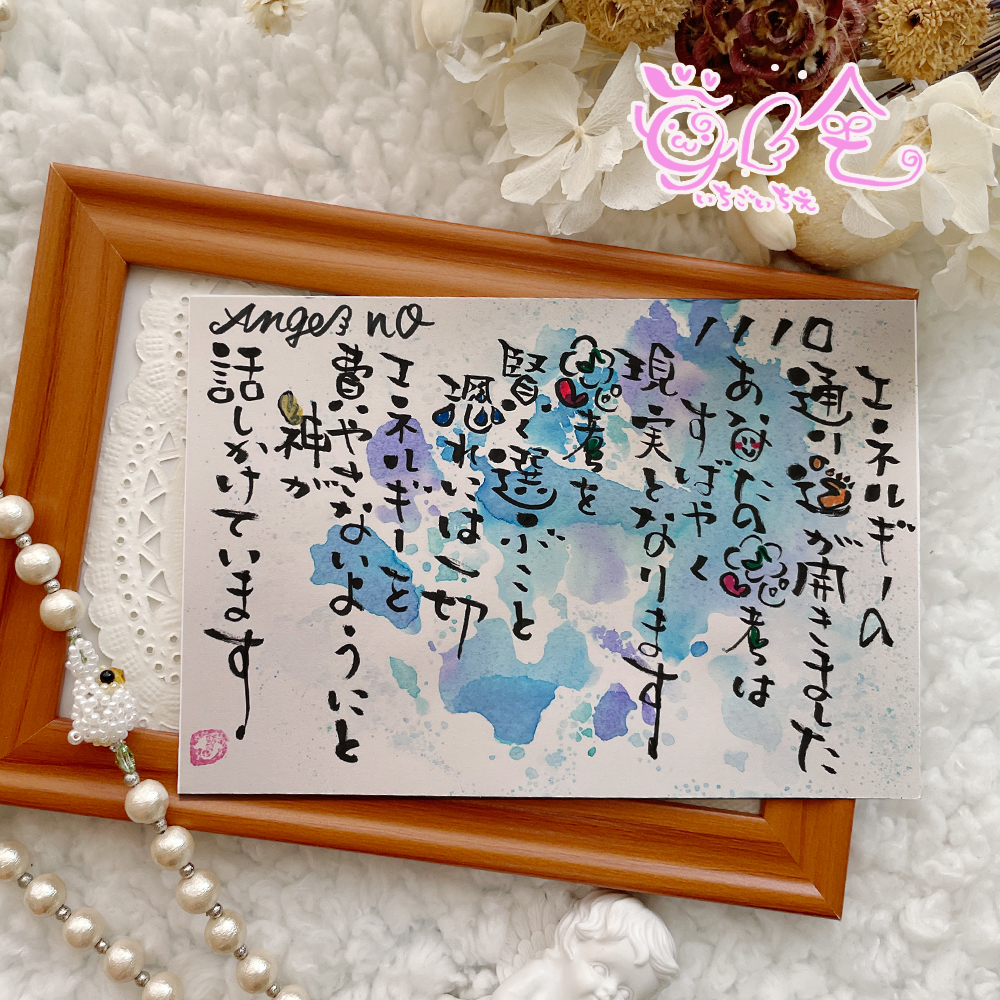 Angel no
1110
エネルギーの
通り道が開きました
あなたの思考は
すばやく
現実となります
思考を
賢く選ぶこと
恐れには一切
エネルギーを
費やさないようにと
神が
話しかけています
いちごいちえ